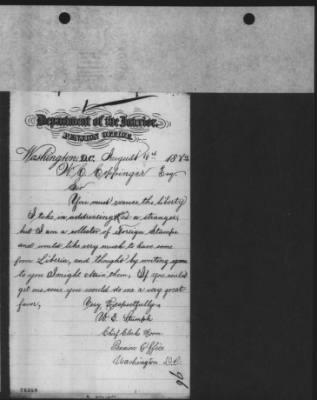 Department of the Interior,
PENSION OFFICE,
Washington, D.C., August 4th, 1882
W. E. Eppinger Esq
Sir
You must excuse the liberty
I take in addressing you a stranger,
but I am a collector of Foreign Stamps
and would like very much to have some
from Liberia, and thought by writing
to you I might obtain them, If you could
get me some you would do me a very great
favor,
Very Respectfully
Chief Clerks Room
Pension Office
Washington D.C.
96